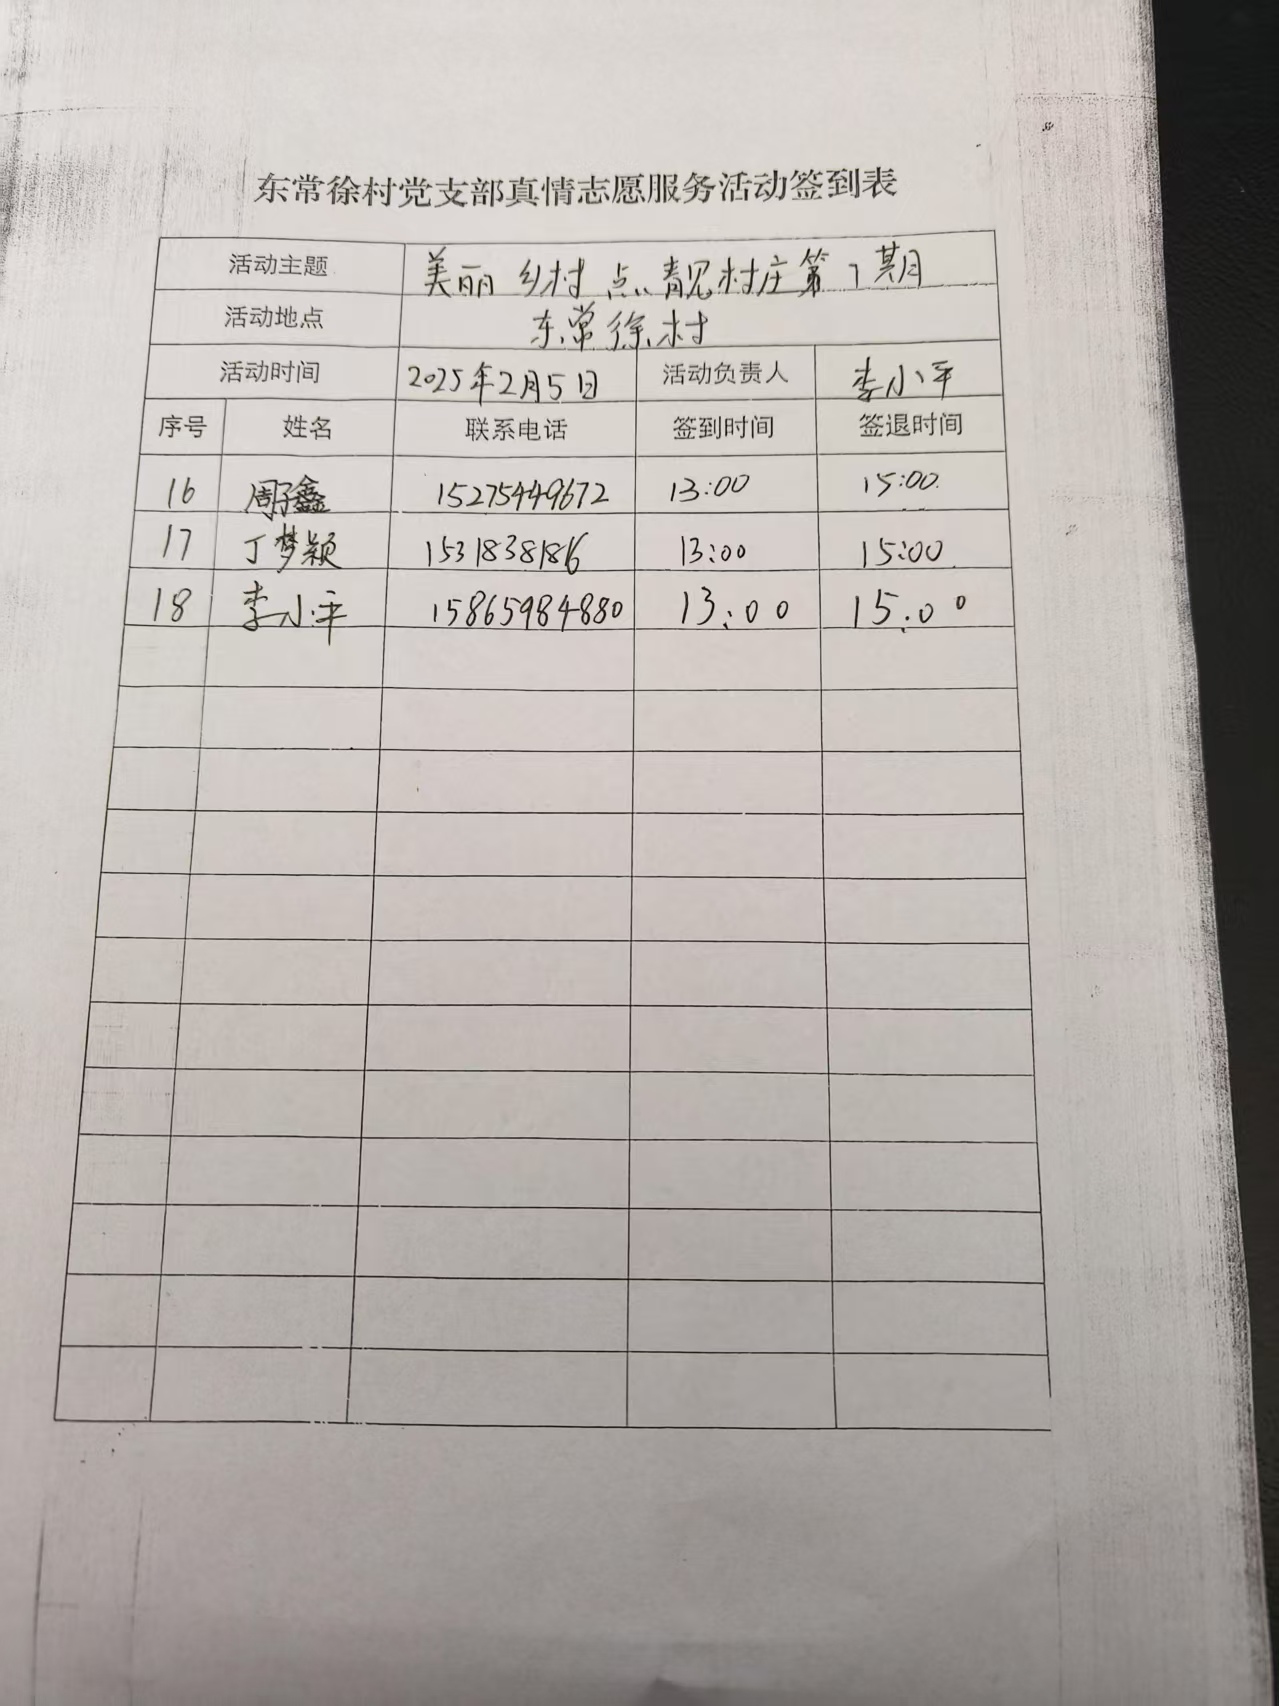 东常徐村党支部真情志愿服务活动签到表
活动主题 美丽乡村 点靓村庄第7期
活动地点 东常徐村
活动时间 2025年2月5日 活动负责人 李小平
序号 姓名 联系电话 签到时间 签退时间
16 周子鑫 15275449672 13:00 15:00
17 丁梦颖 15318381816 13:00 15:00
18 李小平 15865984880 13:00 15:00